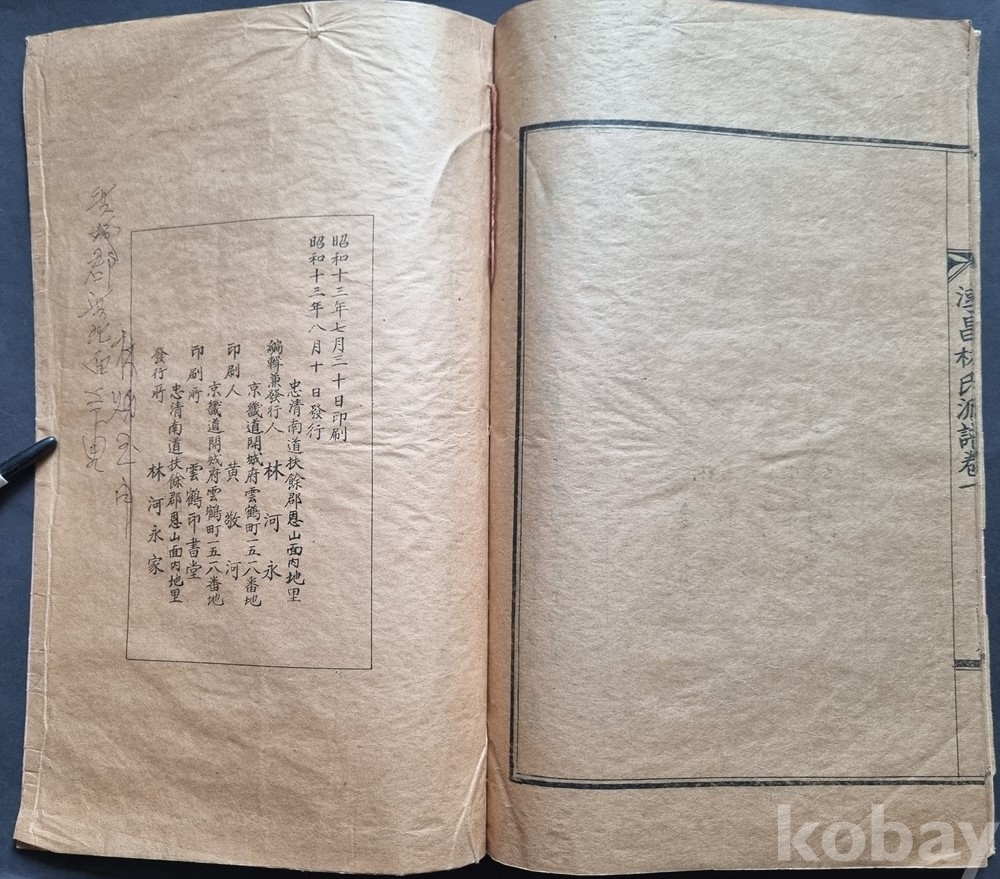 淳昌林氏派譜卷一
昭和十三年七月三十日印刷
昭和十三年八月十日發行
忠清南道扶餘郡恩山面內地里
編輯兼發行人 林河永
京畿道開城府雲鶴町一五一八番地
印刷人 黃敬河
京畿道開城府雲鶴町一五一八番地
印刷所 雲鶴印書堂
忠清南道扶餘郡恩山面內地里
發行所 林河永家
kobay